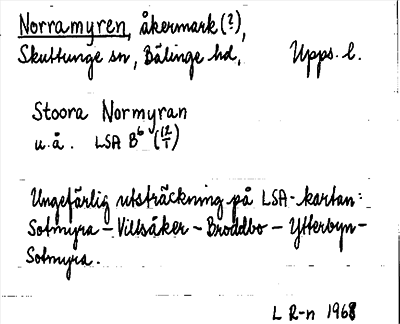 Norramyren, åkermark(?),
Skuttunge sn, Bälinge hd, Upps. l.
Stoora Normyran
u.å. LSA B⁶ (12/1)
Ungefärlig utsträckning på LSA-kartan:
Sotmyra – Villsåker – Broddbo – Ytterbyn –
Sotmyra.
L R-n 1968